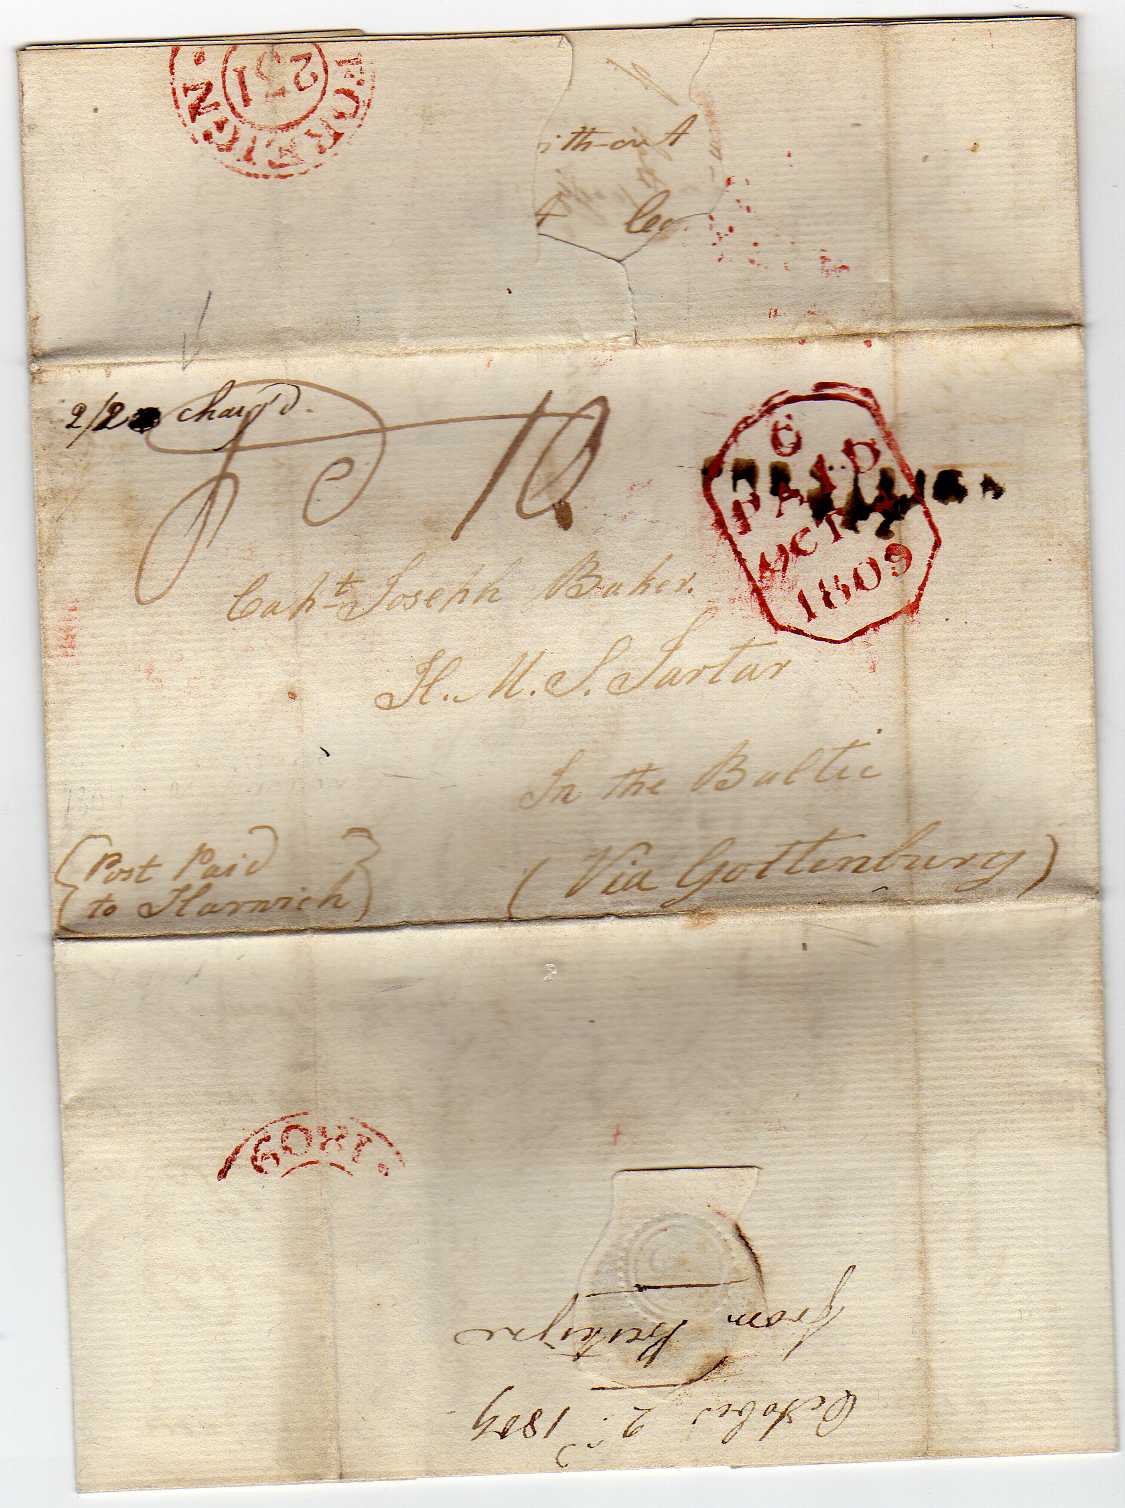 FOREIGN
231
ith-out
2/2 charg'd.
10
6
PAID
OCT
1809
Capt Joseph Baker.
H. M. S. Tartar
In the Baltic
(Via Gottenburg)
Post Paid
to Harwich
1809
from
October 2d. 1809